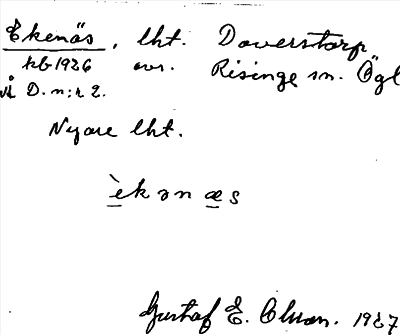 Ekenäs, lht. Doverstorp,
kb 1926 avs. Risinge sn. Ögl
på D. n:r 2.
Nyare lht.
èkənæs
Gustaf E. Clvan. 1927